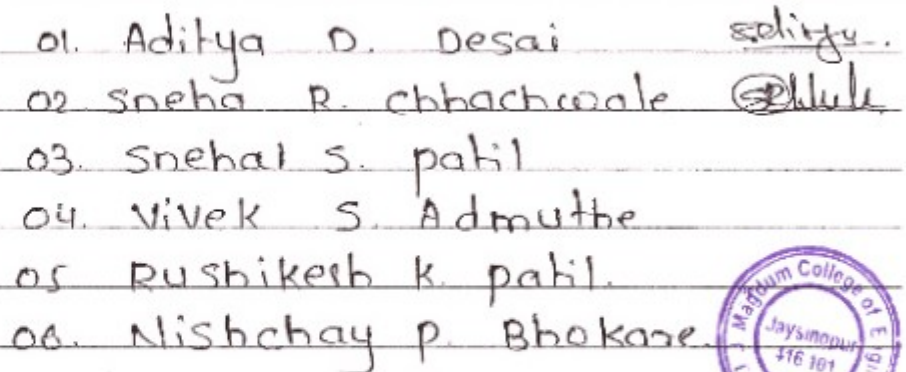 01. Aditya D. Desai
02 Sneha R. Chhachwale
03. Snehal S. patil
04. Vivek S. Admuthe
05 Rushikesh K. patil.
06. Nishchay P. Bhokare.
J J Magdum College of Engi
Jaysingpur
416 101